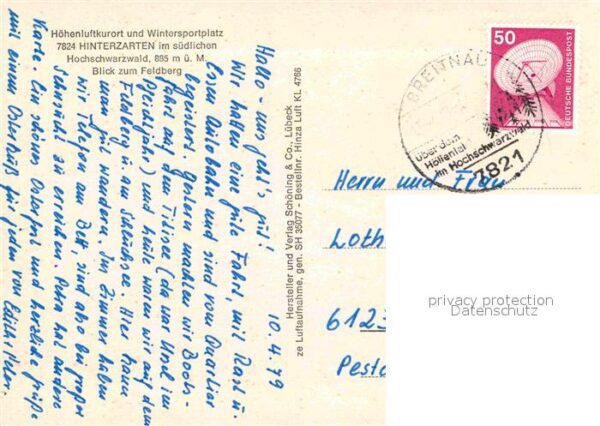 Höhenluftkurort und Wintersportplatz
7824 HINTERZARTEN im südlichen
Hochschwarzwald, 895 m ü. M.
Blick zum Feldberg
10.4.79
Hallo - uns geht's gut!
Wir hatten eine gute Fahrt, mit Rast u.
und sind vom Quartier
begeistert. Gestern machten wir Boots-
fahrt auf dem Titisee (da war Ursel im
) und heute waren wir auf dem
Feldberg u. am Schluchsee. Hier kann
man gut wandern. Im Zimmer haben
wir Telefon am Bett, sind also bei großer
Sehnsucht zu erreichen. Petra hat andere
Karte. Ein schönes Osterfest und herzliche Grüße
mit einem für jeden von
Hersteller und Verlag Schöning & Co., Lübeck
ze Luftaufnahme, gen. SH 35077 - Bestellnr. Hinza Luft KL 4766
50
DEUTSCHE BUNDESPOST
BREITNAU
über dem
Höllental
im Hochschwarzwald
7821
Herrn und Frau
Loth
6123
Pesta
privacy protection
Datenschutz